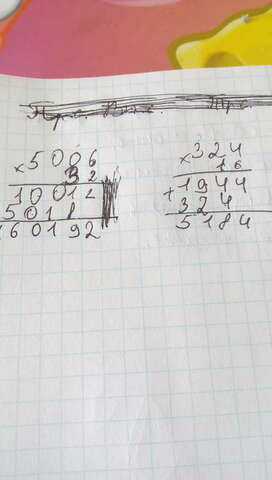 × 5006
32
10012
5018
160192
× 324
16
+ 1944
324
5184